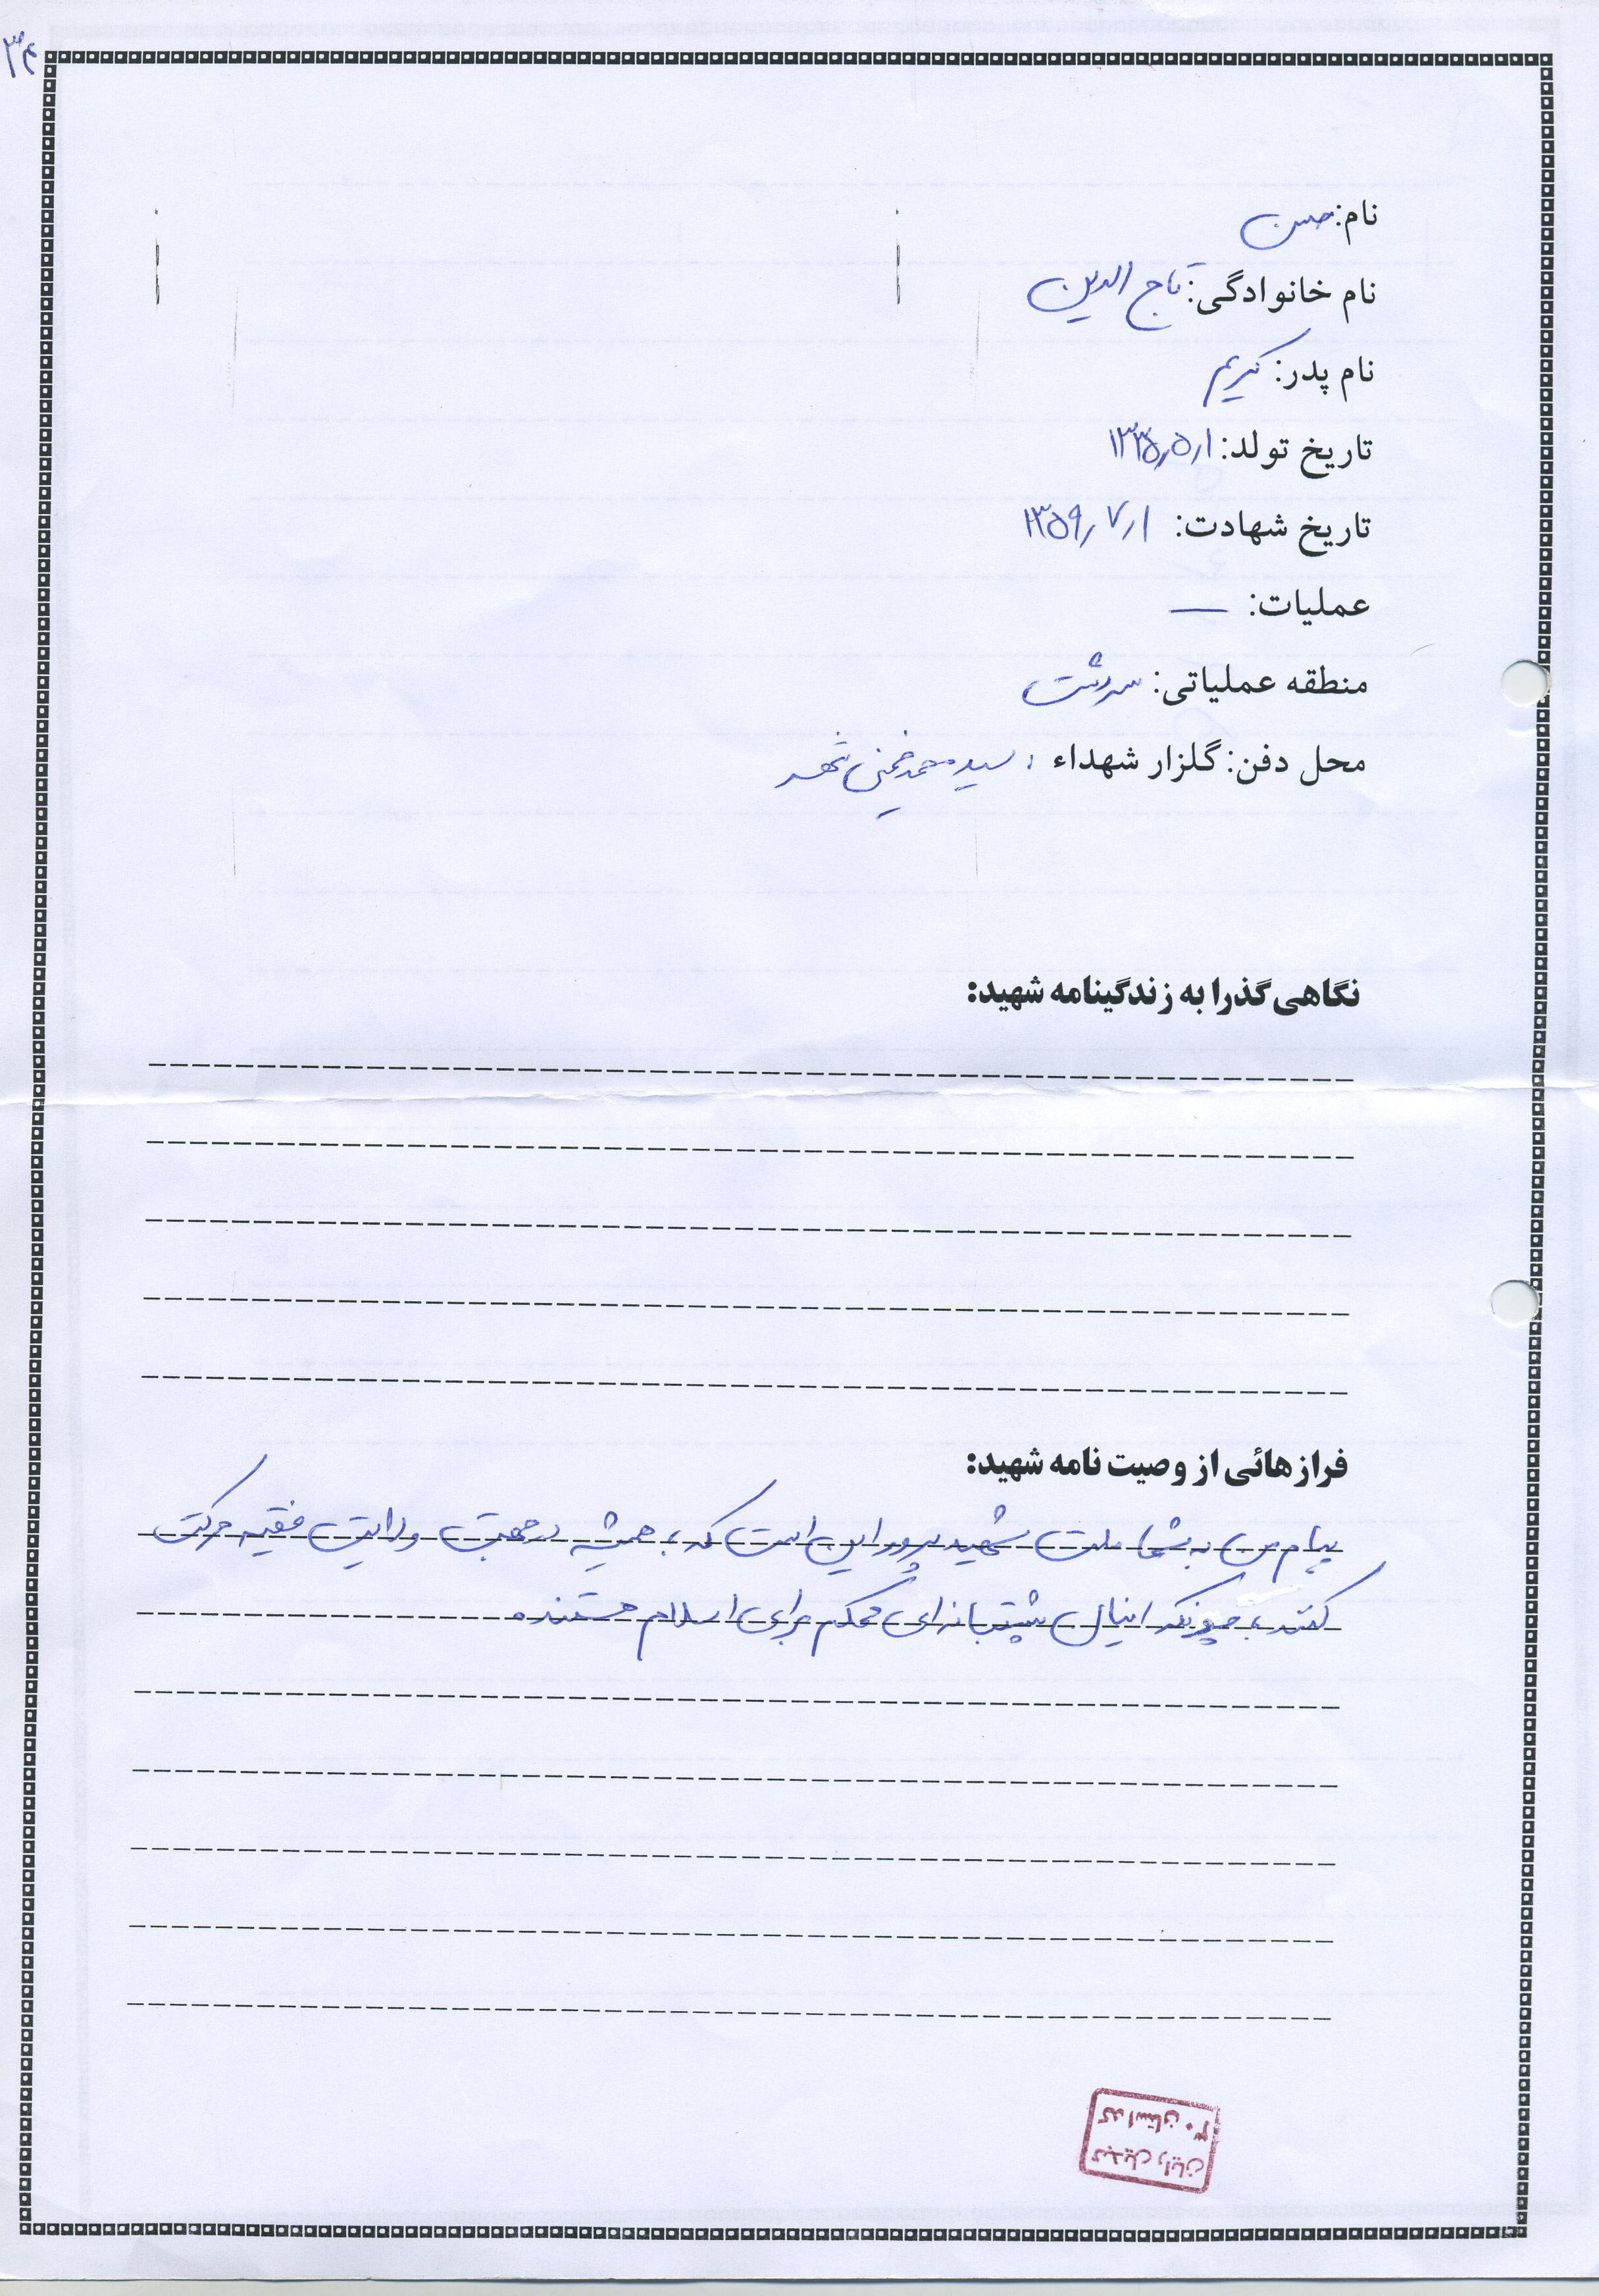 ۳۴
نام: حسن
نام خانوادگی: تاج الدین
نام پدر: کریم
تاریخ تولد: ۱۳۳۵/۵/۱
تاریخ شهادت: ۱۳۵۹/۷/۱
عملیات: —
منطقه عملیاتی: سردشت
محل دفن: گلزار شهداء : سید محمد خمینی شهر
نگاهی گذرا به زندگینامه شهید:
فرازهائی از وصیت نامه شهید:
پیام من به شما ملت شهید پرور این است که، همیشه در جهت ولایت فقیه حرکت
کنند، چونکه اینان پشتبانه‌ای محکم برای اسلام هستند.
تبدیل رایان
کد استان ۳۰